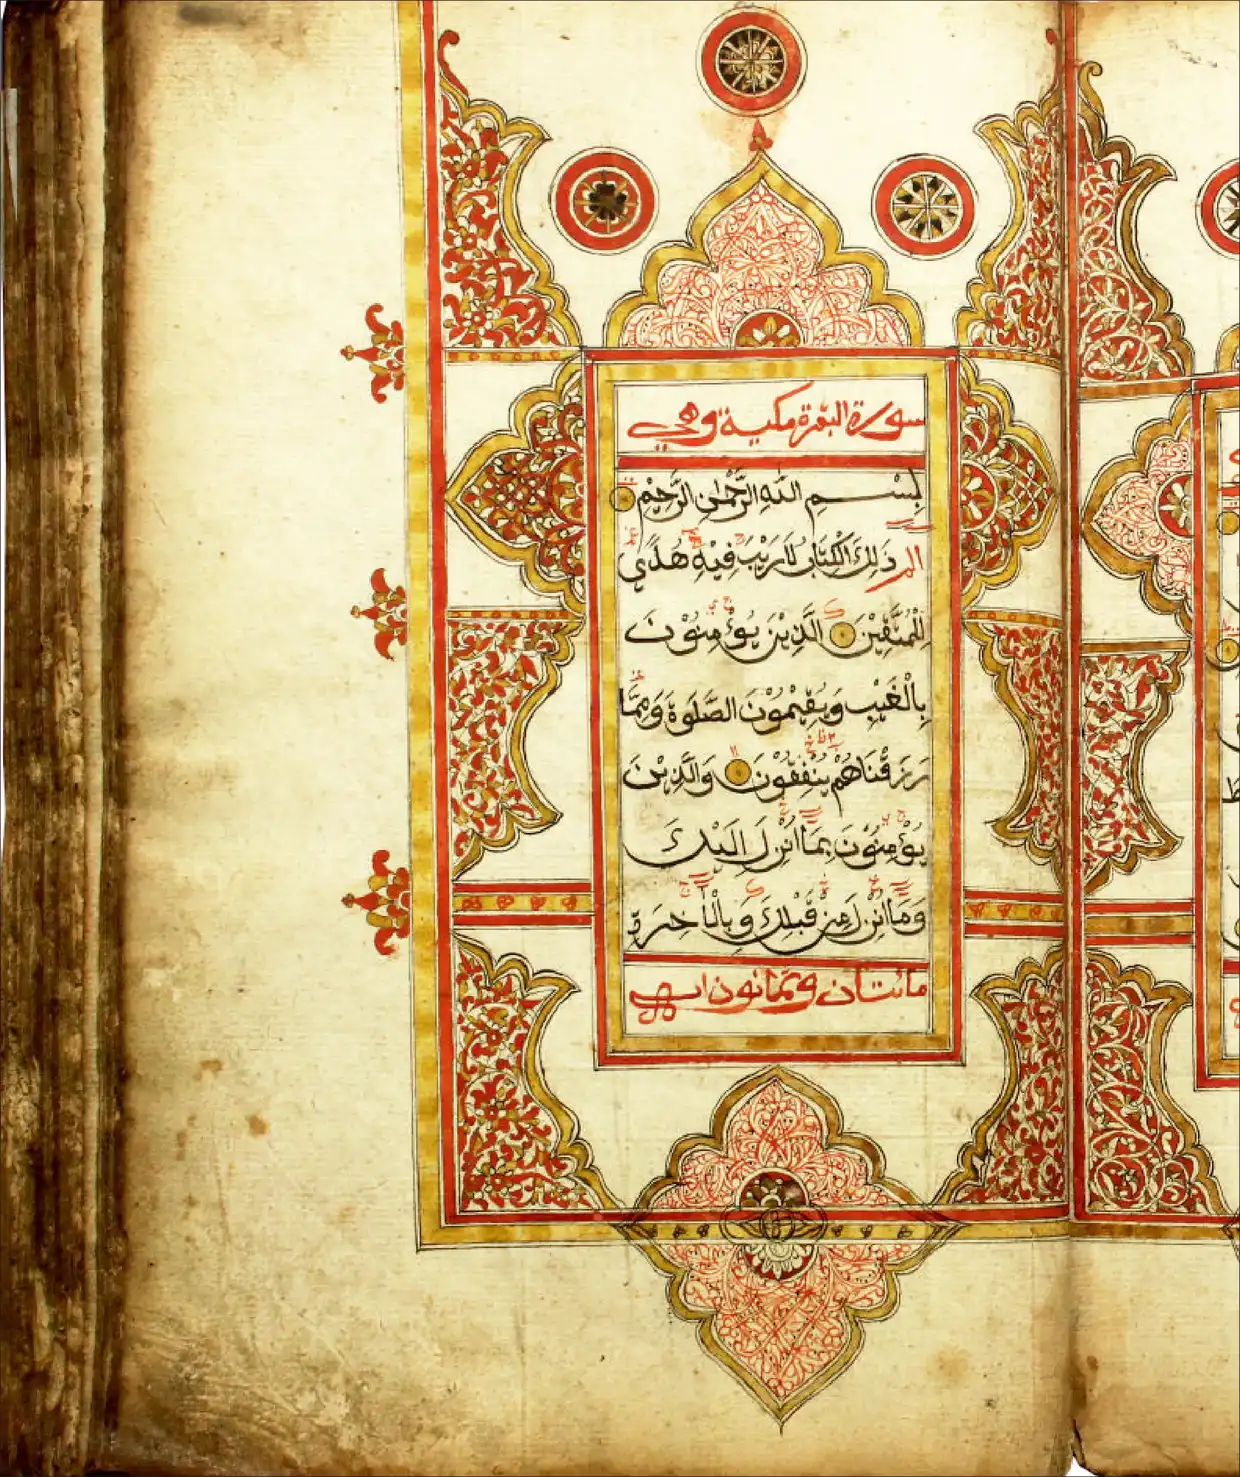 سورة البقرة مكية وهي
بِسْمِ اللّٰهِ الرَّحْمٰنِ الرَّحِيْمِ
الم ذٰلِكَ الْكِتَابُ لَا رَيْبَ فِيْهِ هُدًى
لِلْمُتَّقِيْنَ الَّذِيْنَ يُؤْمِنُوْنَ
بِالْغَيْبِ وَيُقِيْمُوْنَ الصَّلٰوةَ وَمِمَّا
رَزَقْنَاهُمْ يُنْفِقُوْنَ وَالَّذِيْنَ
يُؤْمِنُوْنَ بِمَا اُنْزِلَ اِلَيْكَ
وَمَا اُنْزِلَ مِنْ قَبْلِكَ وَبِالْاٰخِرَةِ
مائتان وثمانون اية